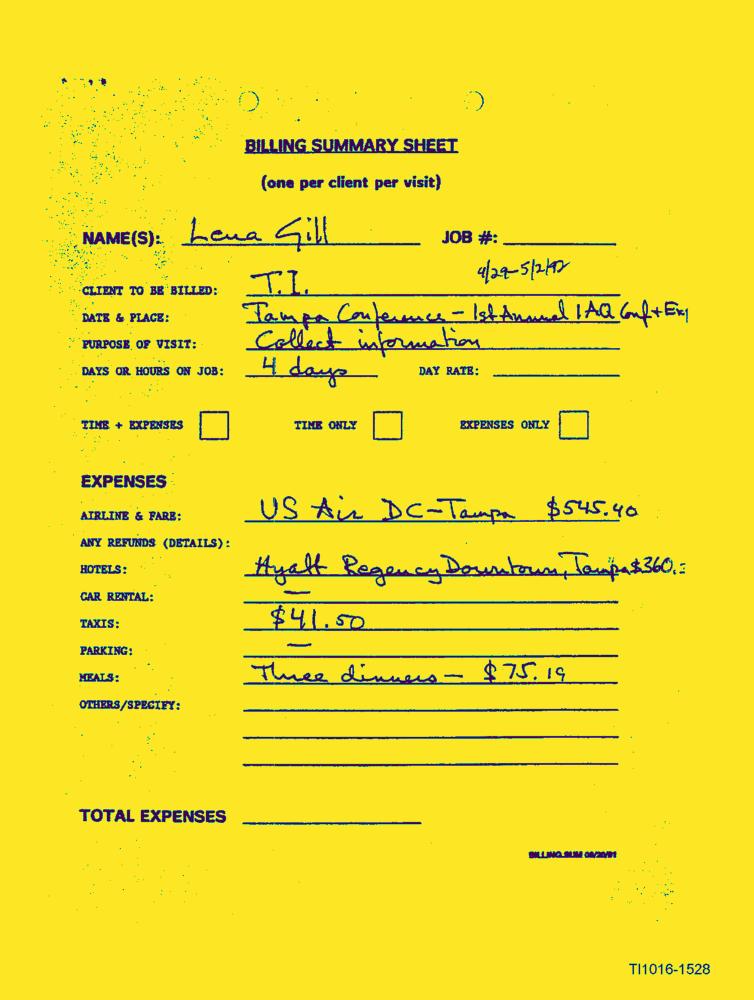 BILLING SUMMARY SHEET
(one per client per visit)
NAME(S): Lena Gill JOB #:
4/29-5/2/92
CLIENT TO BE BILLED: T.I.
DATE & PLACE: Tampa Conference - 1st Annual IAQ Conf + Ex
PURPOSE OF VISIT: Collect information
DAYS OR HOURS ON JOB: 4 days DAY RATE:
TIME + EXPENSES TIME ONLY EXPENSES ONLY
EXPENSES
AIRLINE & FARE: US Air DC-Tampa $545.40
ANY REFUNDS (DETAILS):
HOTELS: Hyatt Regency Downtown, Tampa $360.
CAR RENTAL: —
TAXIS: $41.50
PARKING: —
MEALS: Three dinners - $75.19
OTHERS/SPECIFY:
TOTAL EXPENSES
BILLING.SUM 08/20/91
TI1016-1528